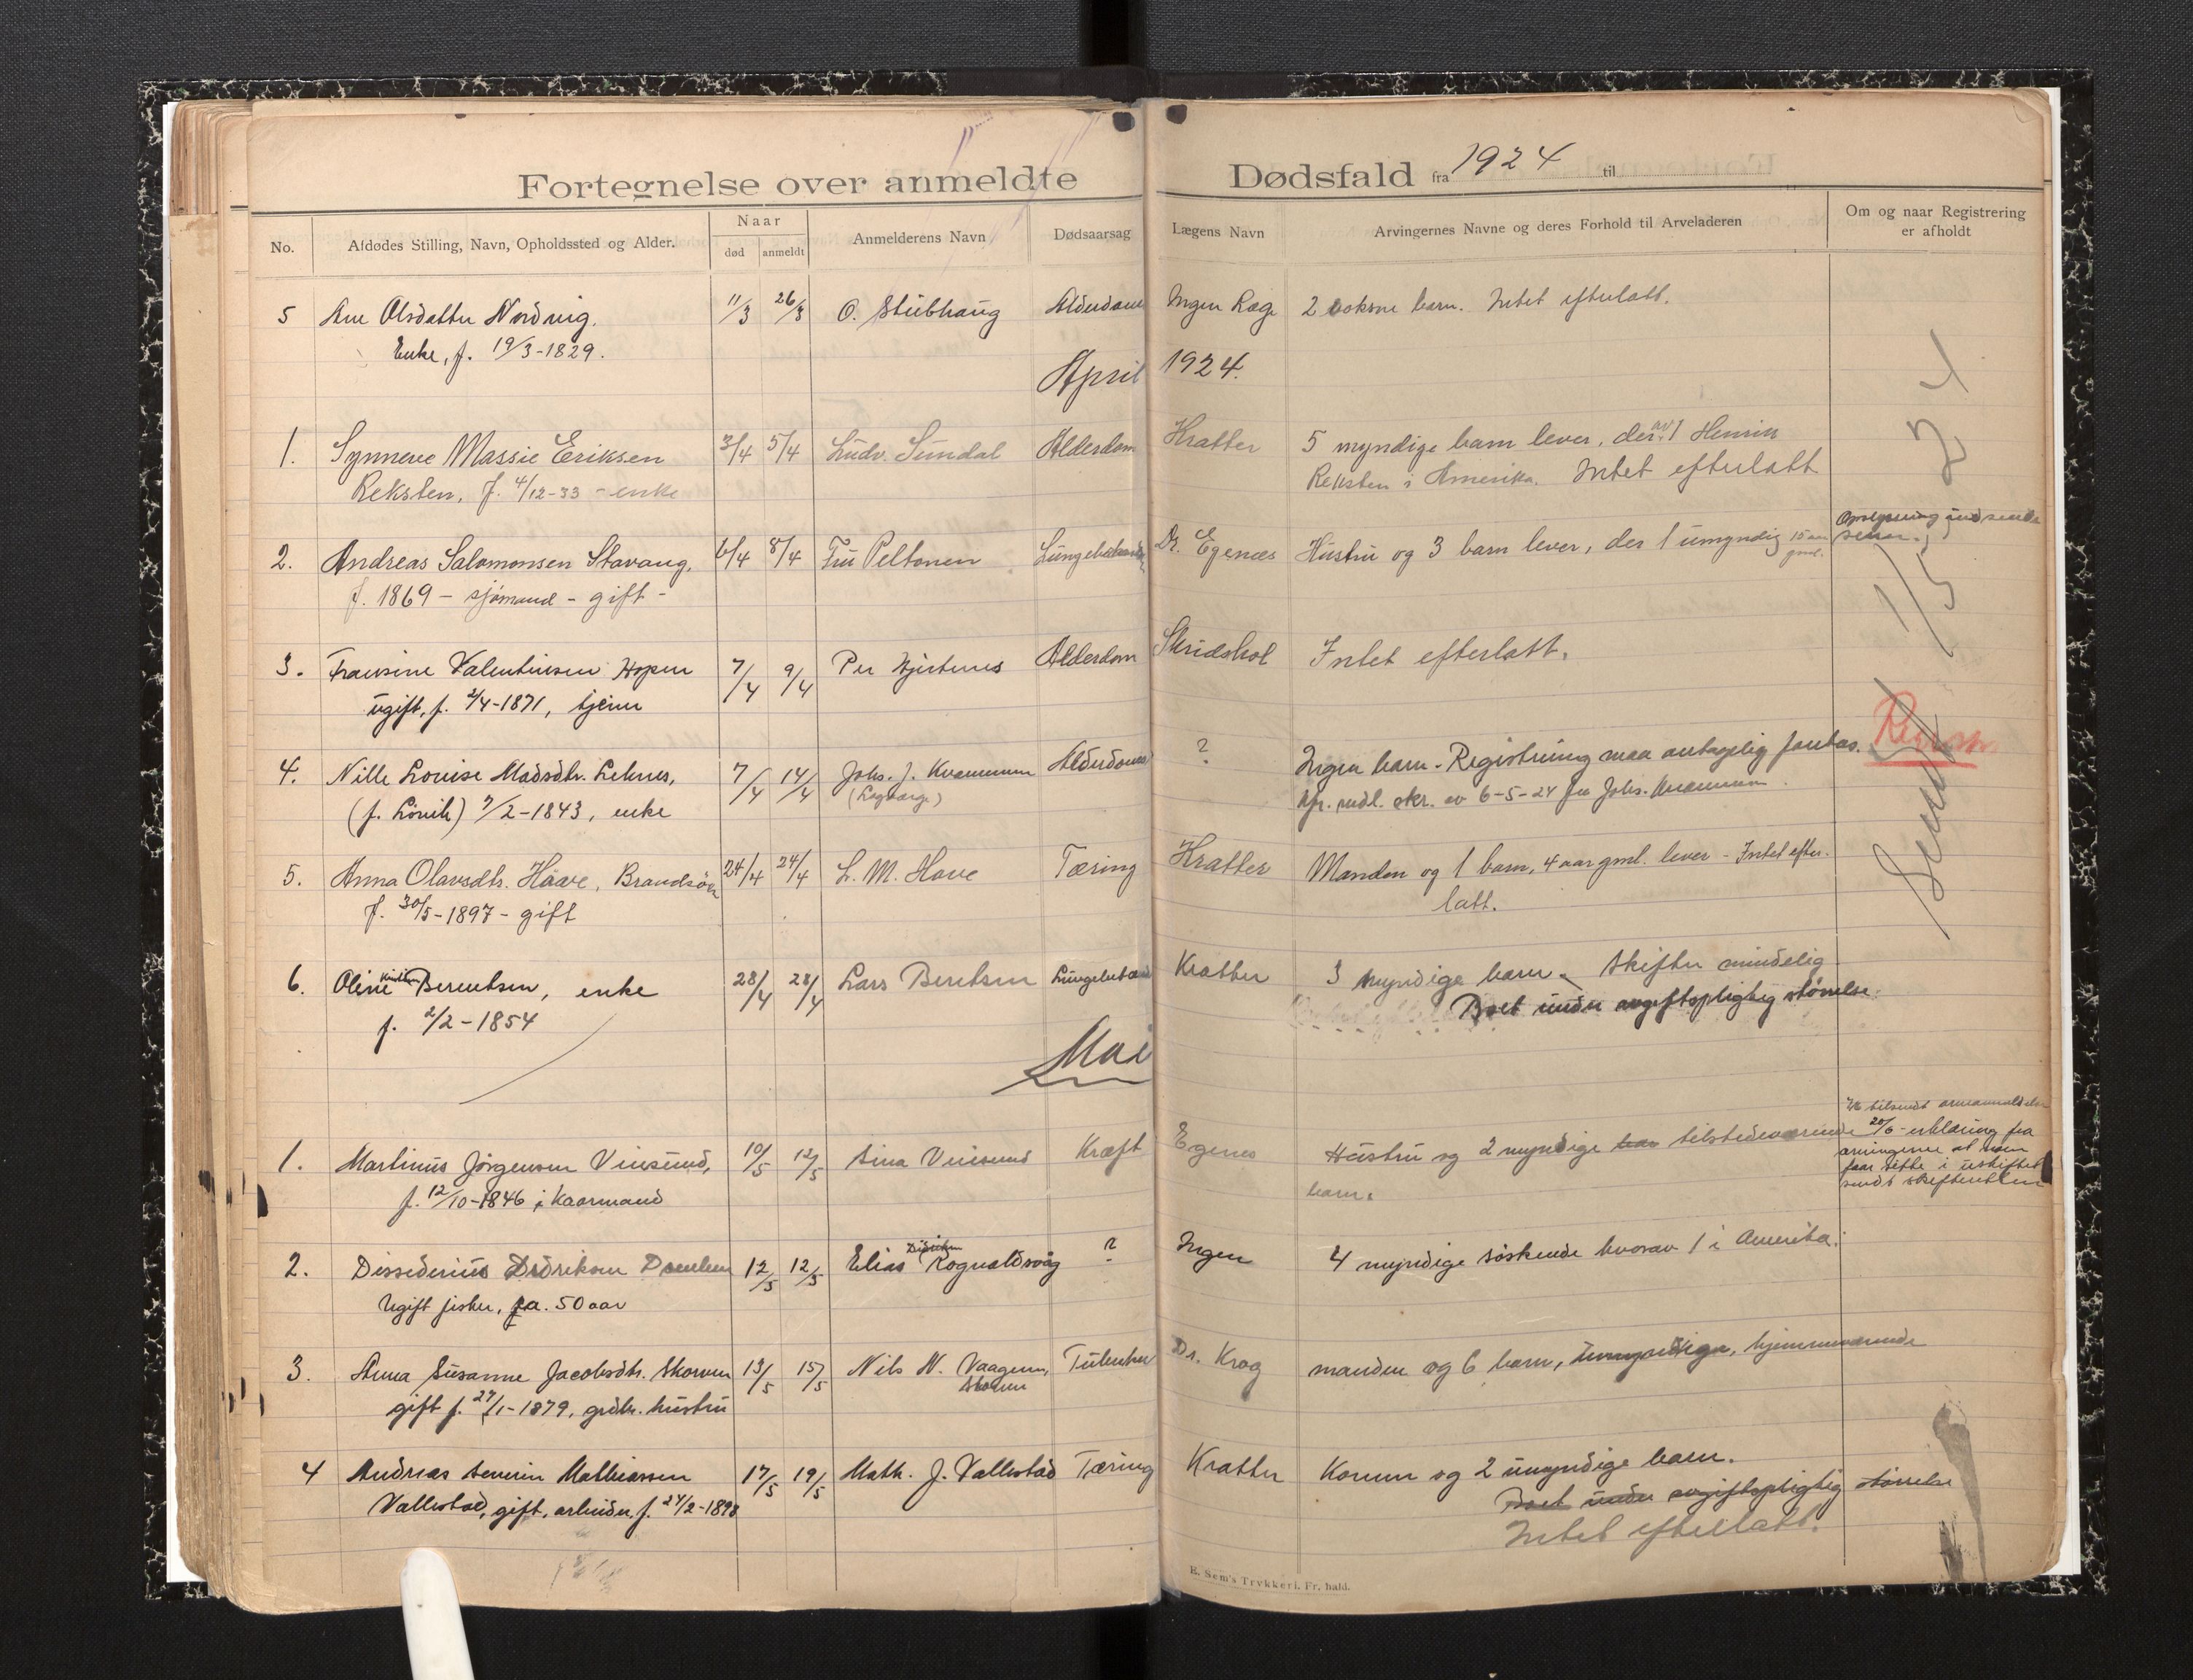 Fortegnelse over anmeldte Dødsfald fra 1924 til
No.
Afdødes Stilling, Navn, Opholdssted og Alder.
Naar
død anmeldt
Anmelderens Navn
Dødsaarsag
Lægens Navn
Arvingernes Navne og deres Forhold til Arveladeren
Om og naar Registrering
er afholdt
5 Ane Olsdatter Nordvig. 11/3 26/3 O. Stubhaug Alderdom Ingen Læge 2 voksne barn. Intet efterlatt.
Enke, f. 19/3-1829.
April 1924.
1. Synneve Massie Eriksen 3/4 5/4 Ludv. Sundal Alderdom Kratter 5 myndige barn lever, der av 1 Henrik
Reksten, f. 4/12-33 - enke
Reksten i Amerika. Intet efterlatt
2. Andreas Salomonsen Stavang, 6/4 8/4 Fru Peltonen Dr. Egenæs Hustru og 3 barn lever, der 1 umyndig 15 aar
gml.
f. 1869 - sjømand - gift -
3. Fransine Valentinsen Hopen 7/4 9/4 Per Hjertenes Alderdom Intet efterlatt.
ugift, f. 2/4-1871, tjener
4. Nille Louise Madsdtr. Leknes, 7/4 14/4 Johs. J. Kvammen Alderdom ? Ingen barn. Registrering maa antagelig foretas.
(Lagværge)
(f. Lövik) 7/2-1843, enke
kfr. medl. skr. av 6-5-24 fra Johs. Kvammen.
5. Anna Olavsdtr. Haave, Brandsöen 24/4 24/4 L. M. Hove Tæring Kratter Manden og 1 barn, 4 aar gml. lever - Intet efter-
f. 30/5-1897 - gift
latt.
6. Oline Berentsen, enke 28/4 28/4 Lars Berntsen Lungebetænd Kratter 3 myndige barn. Skifter mindelig
f. 2/2-1854
Boet under avgiftspligtig størrelse.
Mai
1. Martinus Jørgensen Vinsund, 10/5 12/5 Sina Vinsund Kræft Egenes Hustru og 2 myndige tilstedeværende
f. 12/10-1846, kaarmand
barn.
20/6 erklæring fra
arvingerne at
faar sitte i uskiftet
2. Dissederius Didriksen 12/5 12/5 Elias Didriksen Rognaldsvåg ? Ingen 4 myndige søskende hvorav 1 i Amerika.
Ugift fisker, ca. 50 aar
3. Anna Susanne Jacobsdtr. Skorven 13/5 15/5 Nils N. Vaagene, Tuberkul Dr. Krog manden og 6 barn, umyndige, hjemmeværende
gift f. 27/1-1879, grdbr. hustru
4 Andreas Severin Mathiassen 17/5 19/5 Math. J. Vallestad Tæring Kratter Konen og 2 umyndige barn.
Vallestad, gift, arbeider, f. 27/2-1898
Boet under avgiftspligtig størrelse
Intet efterlatt.
Sendt 1/5 24
E. Sem's Trykkeri, Fr. hald.